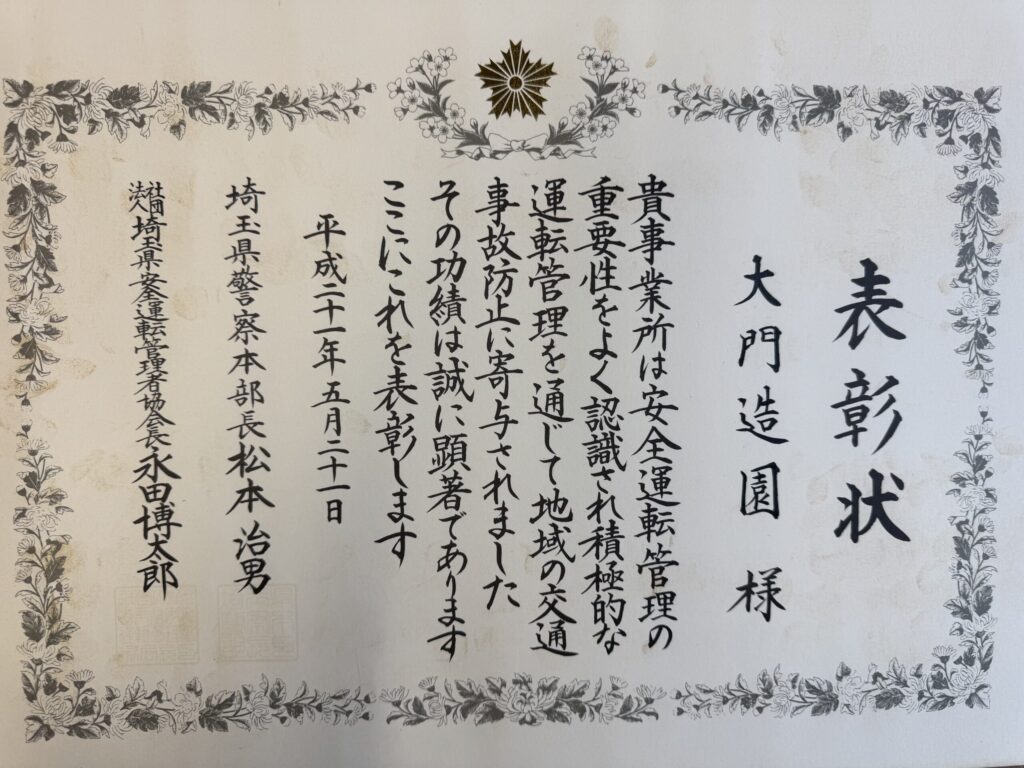 表彰状
大門造園 様
貴事業所は安全運転管理の
重要性をよく認識され積極的な
運転管理を通じて地域の交通
事故防止に寄与されました
その功績は誠に顕著であります
ここにこれを表彰します
平成二十一年五月二十一日
埼玉県警察本部長 松本治男
社団法人埼玉県安全運転管理者協会長 永田博太郎